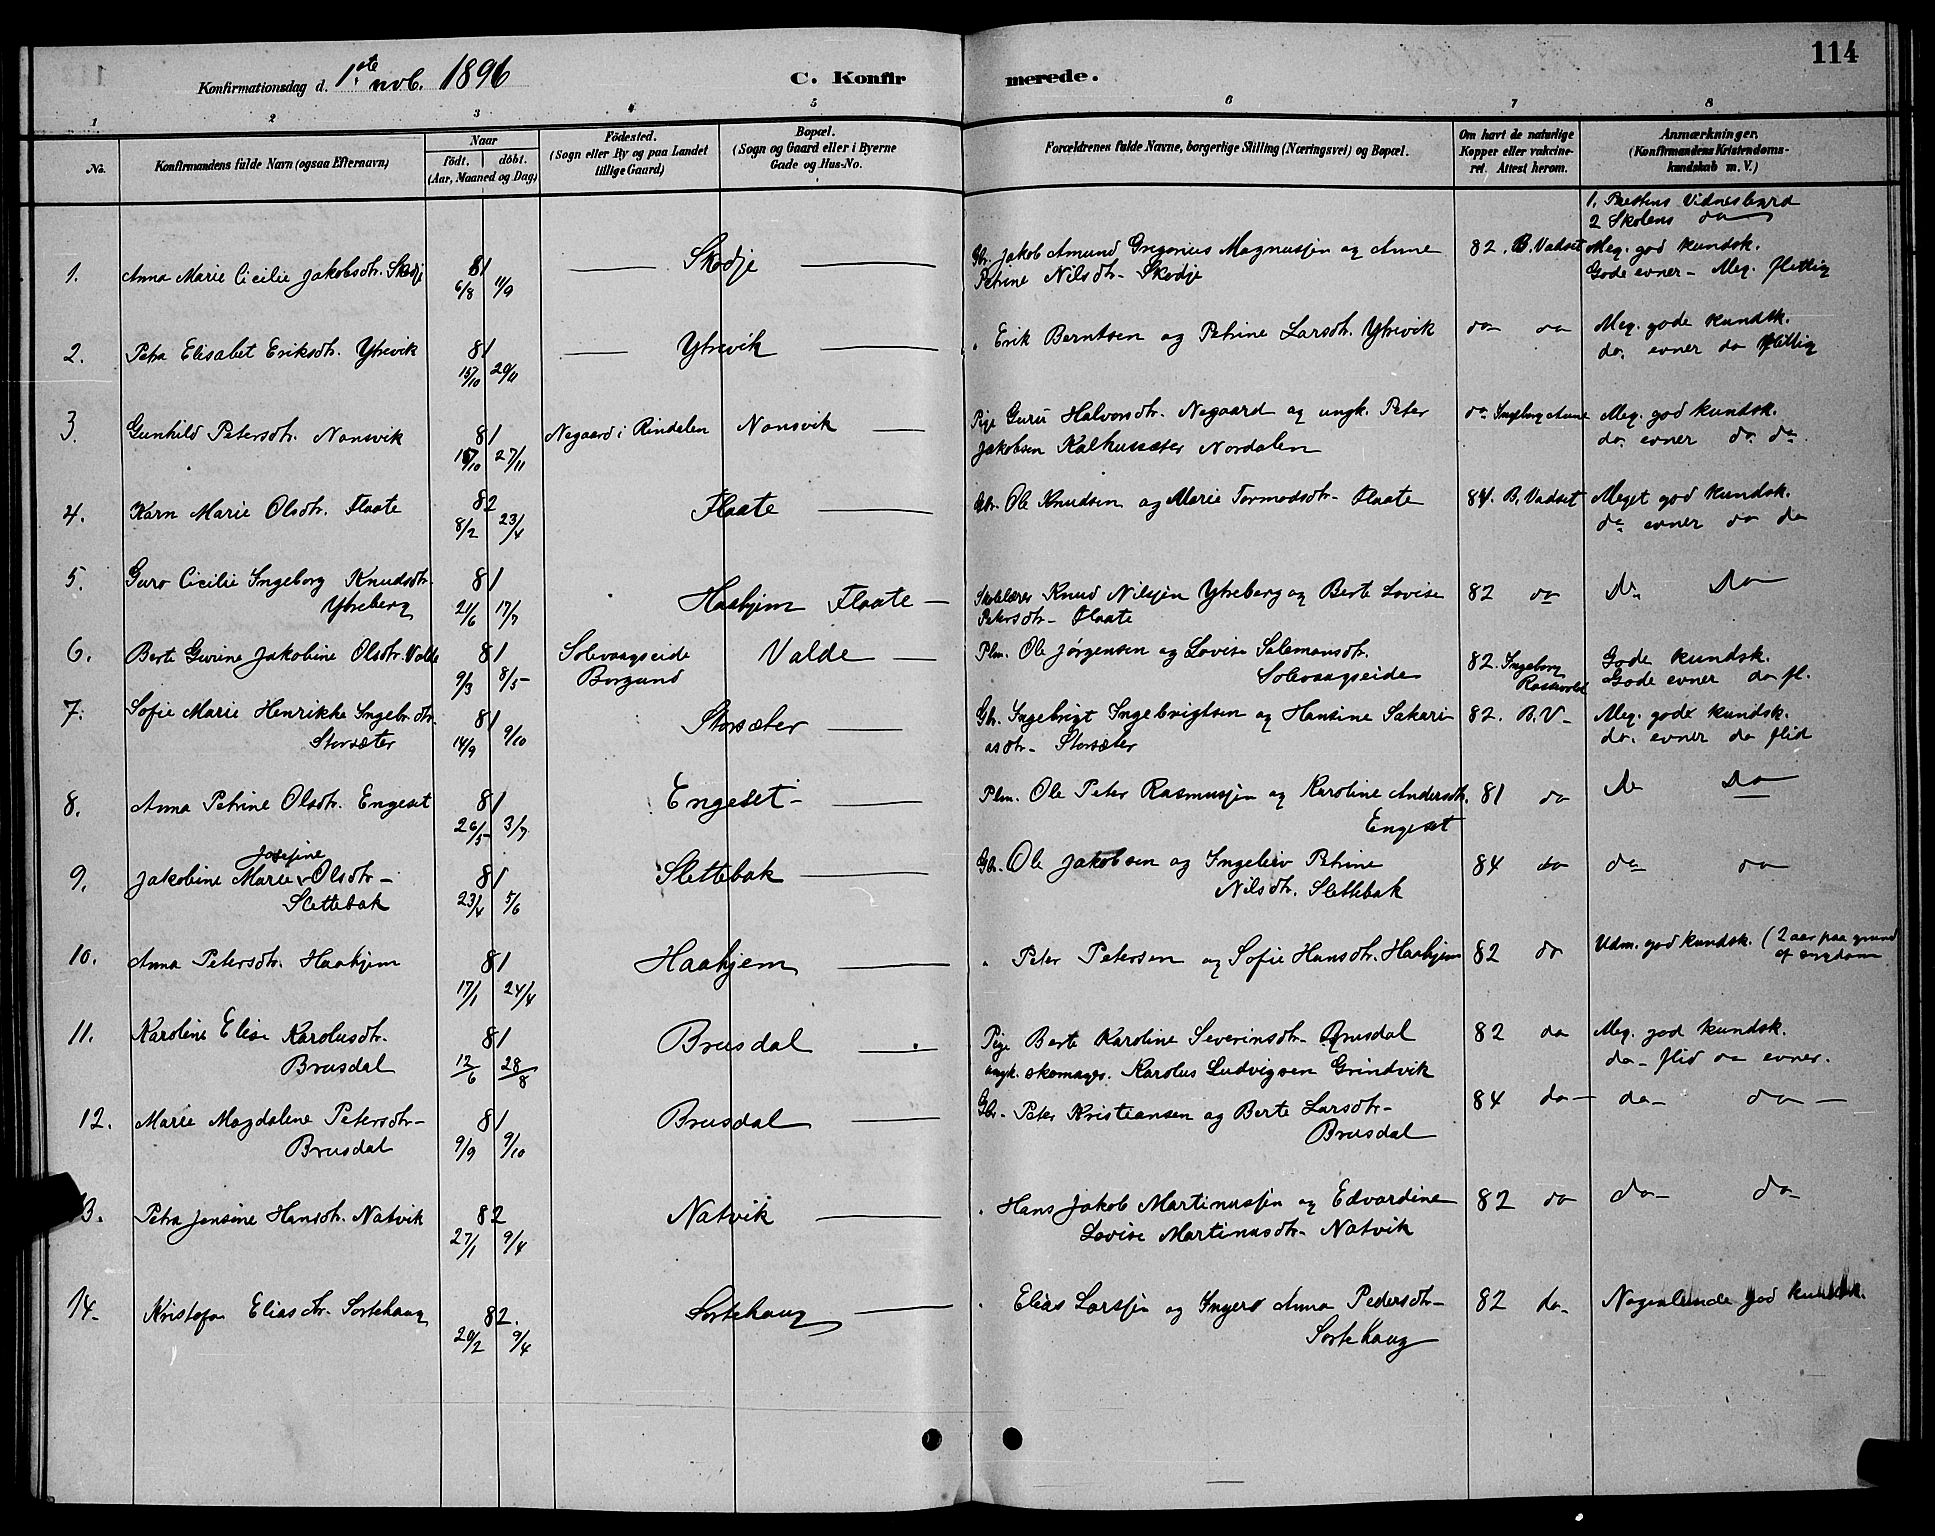 114
Konfirmationsdag d. 1.ste nvb. 1896
C. Konfirmerede.
1 2 3 4 5 6 7 8
No.
Konfirmandens fulde Navn (ogsaa Efternavn)
Naar
födt. döbt.
(Aar, Maaned og Dag)
Födested.
(Sogn eller By og paa Landet
tillige Gaard)
Bopæl.
(Sogn og Gaard eller i Byerne
Gade og Hus-No.
Forældrenes fulde Navne, borgerlige Stilling (Næringsvei) og Bopæl.
Om havt de naturlige
Kopper eller vakcine-
ret. Attest herom.
Anmærkninger.
(Konfirmandens Kristendoms-
kundskab m. V.)
1. Prestens Vidnesbyrd
2 Skolens do
1. Anna Marie Cicilie Jakobsdtr. Skodje 81 6/8 11/9 Skodje
Gbr. Jakob Amund Gregorius Magnussen og Anne
Petrine Nilsdtr. Skodje
82. B. Vadset
Meg. god kundsk.
Gode evner - Meg. flittig
2. Petra Elisabet Eriksdtr. Ytrevik 81 15/10 20/11 Ytrevik
Erik Berntsen og Petrine Larsdtr. Ytrevik
do do
Meg. gode kundsk.
do. evner do flittig
3. Gunhild Petersdtr. Nonsvik 81 15/10 27/11 Negaard i Rindalen Nonsvik
Pige Guru Halvorsdtr. Negaard og ungk. Peter
Jakobsen Kalhussæter Nordalen
do Ingeborg Aune
Meg. god kundsk.
do. evner do do.
4. Karn Marie Olsdtr. Flaate 82 8/2 23/4 Flaate
Gbr. Ole Knudsen og Marie Tormodsdtr. Flaate
84. B. Vadset
Meget god kundsk.
do evner do do
5. Guro Cicilie Ingeborg Knudsdtr.
Ytreberg
81 21/6 17/7 Haahjem Flaate
Skolelærer Knud Nilsjen Ytreberg og Berte Lovise
Petersdtr. Flaate
82 do
Do Do
6. Berte Gurine Jakobine Olsdtr. Valde 81 9/3 8/5 Solevaagseide
Borgund
Valde
Plm. Ole Jørgensen og Lovise Salemonsdtr.
Solevaagseide
82. Ingeborg
Gode kundsk.
Gode evner do fl.
7. Sofie Marie Henrikke Ingebr.dtr.
Storsæter
81 14/9 9/10 Storsæter
Gbr. Ingebrigt Ingebrigtsen og Hansine Sakari-
asdtr. Storsæter
82. B.V.
Meg. gode kundsk.
do. evner do flid
8. Anna Petrine Olsdtr. Engeset 81 26/5 3/7 Engeset
Plm. Ole Peter Rasmussjen og Karoline Andersdtr.
Engeset
81 do
Do Do
9. Jakobine Marie Josefine Olsdtr.
Slettebak
81 23/4 5/6 Slettebak
Gbr. Ole Jakobsen og Ingeborg Petrine
Nilsdtr. Slettebak
84 do
do do
10. Anna Petersdtr. Haahjem 81 17/1 24/4 Haahjem
Peter Petersen og Sofie Hansdtr. Haahjem
82 do
Udm. god kundsk. (2 aar paa grund
af sygdom
11. Karoline Elise Karolusdtr.
Brusdal
81 12/6 28/8 Brusdal
Pige Berte Karoline Severinsdtr. Brusdal
ungk. skomager. Karolus Ludvigsen Grindvik
82 do
Meg. god kundsk.
do - flid do evner.
12. Marie Magdalene Petersdtr.
Brusdal
81 9/9 9/10 Brusdal
Gbr. Peter Kristiansen og Berte Larsdtr.
Brusdal
84 do
do do
13. Petra Jensine Hansdtr. Natvik 82 27/1 9/4 Natvik
Hans Jakob Martinussjen og Edvardine
Lovise Martinusdtr. Natvik
82 do
do do
14. Kristofa Eliasdtr. Sortehaug 82. 20/2 9/4 Sortehaug
Elias Larsjen og Ingero Anna Pedersdtr.
Sortehaug
82 do
Nogenlunde god kundsk.